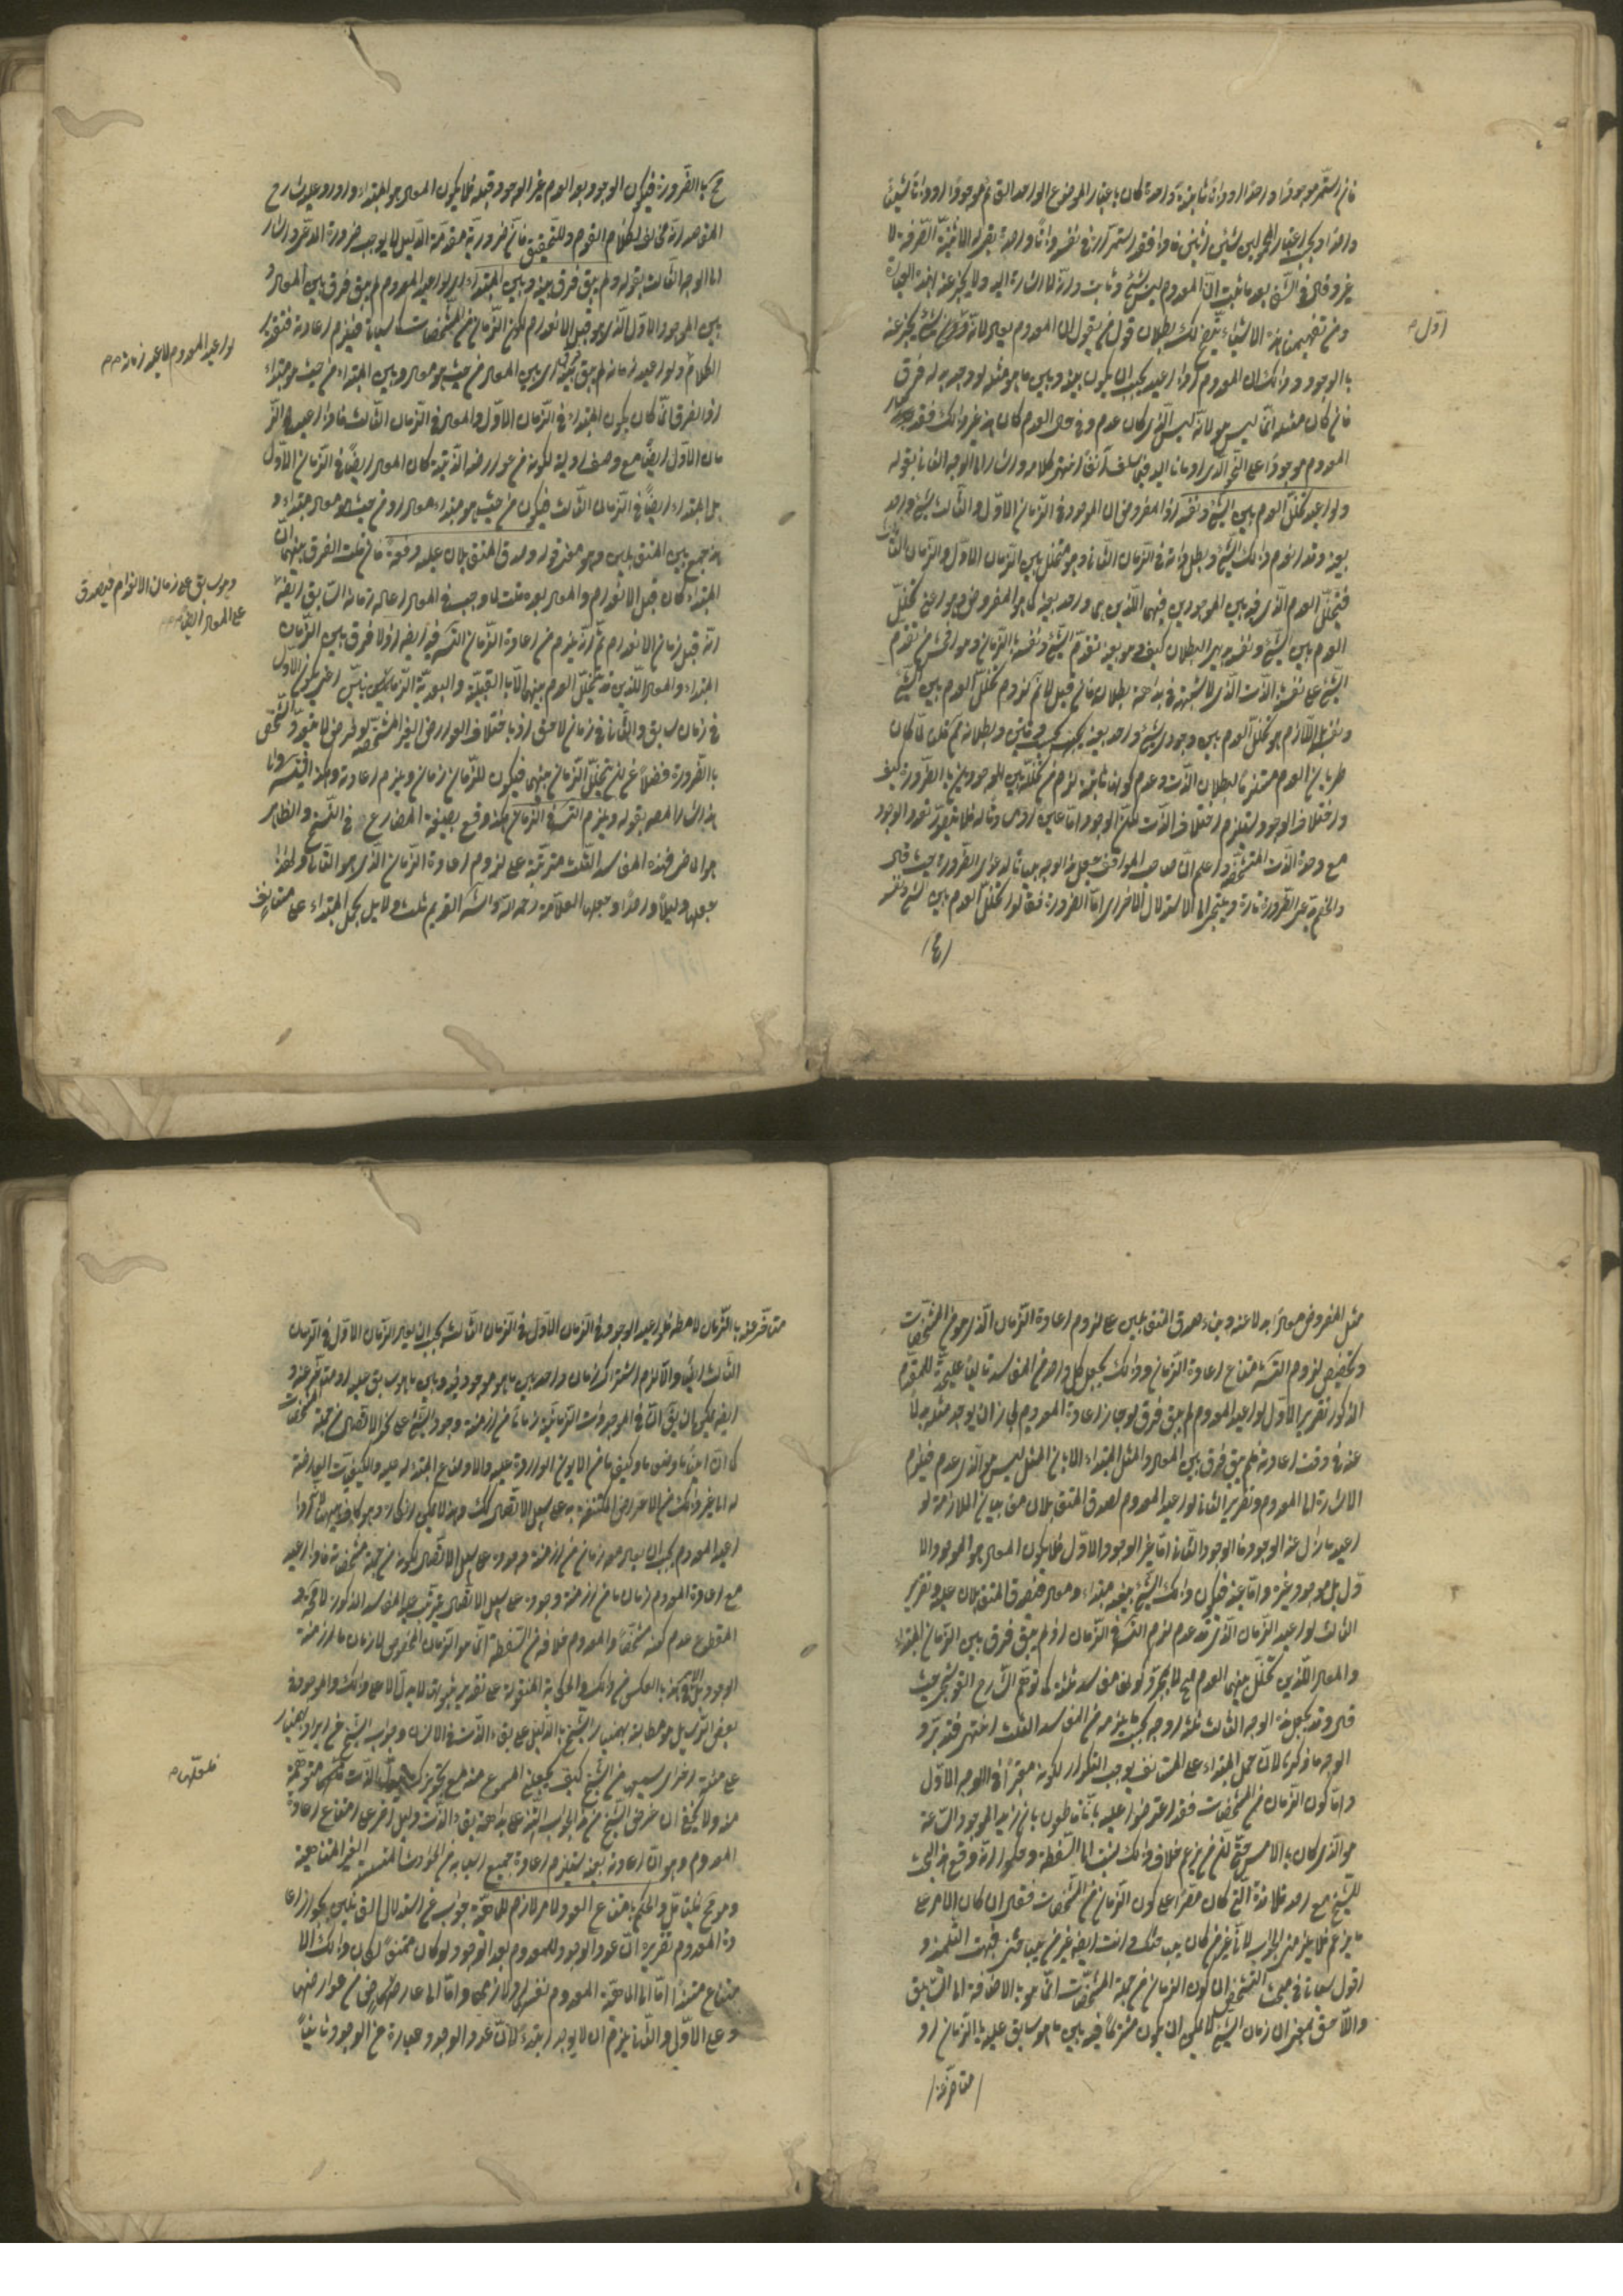 فان استمر موجودا واحدا او ذاتا ثابتة واحدة كان باعتبار الموضوع الواحد القائم موجودا او ذاتا شيئا
واحدا وبحسب اعتبار المحمولين شيئين اثنين فاذا فقد استمراره في نفسه ذاتا واحدة بقي له الاثنينية الصرفة لا
غير وقال في الشفا بعد ما ثبت ان المعدوم ليس بشيء وثابت وانه لا اشارة اليه ولا يخبر عنه
ومن تفهيمنا هذه الاشياء يتضح لك بطلان قول من يقول ان المعدوم يعاد لانه اول شيء يخبر عنه
اول
بالوجود وذلك ان المعدوم اذا اعيد يجب ان يكون بينه وبين ما هو مثله لو وجد بدله فرق
فان كان مثله انما ليس هو لانه ليس الذي كان عدم وفي حال العدم كان هذا غير ذلك فقد صار
المعدوم موجودا على النحو الذي اومأنا اليه فيما سلف آنفا انتهى كلامه واشار الى الوجه الثاني بقوله
ولو اعيد تخلل العدم بين الشيء ونفسه اذ المفروض ان الموجود في الزمان الاول والثالث شيء واحد
بعينه وقد انعدم ذلك الشيء وبطل ذاته في الزمان الثاني وهو متخلل بين الزمان الاول والزمان الثالث
فيتخلل العدم الذي فيه بين الموجودين فيهما اللذين هما واحد بعينه كما هو المفروض وهو اعني تخلل
العدم بين الشيء ونفسه بديهي البطلان كيف وهو بعينه تقدم الشيء ونفسه بالزمان وهو افحش من تقدم
الشيء على نفسه بالذات الذي لا شبهة في بداهة بطلانه فان قيل لا نم لزوم تخلل العدم بين الشيء
ونفسه بل اللازم هو تخلل العدم بين وجودي شيء واحد بعينه بحسب وقتين وبطلانه مم قلت لما كان
طريان العدم مستلزما لبطلان الذات وعدم كونها ثابتة لزم من تخلله بين الموجودين بالضرورة كيف
واختلاف الوجود يستلزم اختلاف الذات لكن الوجود اما عين او مساوق له فلا يتصور تعدد الوجود
مع وحدة الذات المتشخصة واعلم ان صاحب المواقف جعل هذا الوجه بيانا لدعوى الضرورة حيث قال
والخصم يدعي الضرورة تارة ويلتجئ الى الاستدلال اخرى اما الضرورة فقالوا تخلل العدم بين الشيء ونفسه
مح بالضرورة فيكون الوجود بعد العدم غير الوجود قبله فلا يكون المعاد هو المبتدأ واورد عليه شارح
المقاصد انه مخالف لكلام القوم وللتحقيق فان ضرورية مقدمة الدليل لا يوجب ضرورة المدعى واشار
الى الوجه الثالث بقوله ولم يبق فرق بينه وبين المبتدأ اي لو اعيد المعدوم لم يبق فرق بين المعاد و
بين الموجود الاول الذي هو قبل الانعدام لكون الزمان من المشخصات كما سيأتي فيلزم اعادته فتقدير
لو اعيد المعدوم لاعيد زمانه
الكلام ولو اعيد زمانه لم يبق فرق بين المعاد من حيث هو معاد وبين المبتدأ من حيث هو مبتدأ
اذ الفرق انما كان بكون المبتدأ في الزمان الاول والمعاد في الزمان الثالث فاذا اعيد الز
مان الاول ايضا مع وصف اوليته لكونه من عوارضه الذاتية كان المعاد ايضا في الزمان الاول
بل المبتدأ ايضا في الزمان الثالث فيكون من حيث هو مبتدأ معادا ومن حيث هو معاد مبتدأ و
هذا جمع بين المتقابلين وهو معنى قوله وصدق المتقابلان عليه دفعة فان قلت الفرق بينهما ان
المبتدأ كان قبل الانعدام والمعاد بعده قلت لما وجب في المعاد اعادة زمانه السابق ايضا
وهو سابق على زمان الانعدام فيصدق
على المعاد ايضا
انه قبل زمان الانعدام ثم انه يلزم من اعادة الزمان التسلسل فيه ايضا اذ لا فرق بين الزمان
المبتدأ والمعاد اللذين قد تخلل العدم بينهما الا بالقبلية والبعدية الزمانيتين اعني بكون الاول
في زمان سابق والثاني في زمان لاحق اذ باختلاف العوارض الغير المشخصة لو فرض لا يتعدد الشخص
بالضرورة فضلا عن ان يتخلل الزمان بينهما فيكون للزمان زمان ويلزم اعادته وهكذا فيتسلسل والى
هذا اشار المصنف بقوله ويلزم التسلسل في الزمان هكذا وقع بصيغة المضارع في النسخ والظاهر
هو الماضي فهذه المفاسد الثلث مترتبة على لزوم اعادة الزمان الذي هو الثاني ولهذا
جعلها دليلا واحدا وجعلها العلامة رحمه الله في شرحه القديم ثلث دلايل بحمل المبتدأ على
مثل المفروض معادا بدلا عنه وبناء صدق المتقابلين على لزوم اعادة الزمان الذي هو من المشخصات
وتخصيص لزوم التسلسل بامتناع اعادة الزمان وذلك بجعل كل واحد من المفاسد تاليا عليحدة للمقدم
المذكور تقرير الاول لو اعيد المعدوم لم يبق فرق لو جاز اعادة المعدوم لجاز ان يوجد مثله بدلا
عنه في وقت اعادته فلم يبق فرق بين المعاد والمثل المبتدأ الا بان المثل ليس هو الذي عدم فيلزم
الاشارة الى المعدوم وتقرير الثاني لو اعيد المعدوم لصدق المتقابلان من بيان الملازمة لو
اعيد ما زال عنه الوجود فالوجود الثاني اما غير الوجود الاول فلا يكون المعاد هو الموجود الا
ول بل موجود غيره واما عينه فيكون ذلك الشيء بعينه مبتدأ ومعادا فيصدق المتقابلان عليه وتقرير
الثالث لو اعيد الزمان الذي قد عدم لزم التسلسل في الزمان اذ لم يبق فرق بين الزمان المبتدأ
والمعاد اللذين تخلل بينهما العدم الخ لا بمجرد لزوم مفاسد ثلثة كما توهم الشارح القوشجي حيث
قال وقد يجعل هذا الوجه الثالث ثلثة اوجه بحيث يلزمه من المفاسد الثلث انتهى فتدبر و
الوجه ما ذكرنا لان حمل المبتدأ على المستأنف يوجب التكرار لكونه معتبرا في الوجه الاول
واما كون الزمان من المشخصات فقد اعترضوا عليه بانا قاطعون بان زيدا الموجود الساعة
هو الذي كان بالامس حتى ان من زعم خلاف ذلك ينسب الى السفسطة وحكي انه وقع هذا البحث
للشيخ مع احد تلامذته الذي كان مصرا على كون الزمان من المشخصات فقال ان كان الامر على
ما تزعم فلا يلزمني الجواب لاني غير من كان يباحثك وانت ايضا غير من يباحثني فبهت التلميذ و
اقول سيأتي في مبحث التشخص ان كون الزمان من جملة المشخصات انما هو بالاضافة الى السابق
واللاحق بمعنى ان زمان الشيء لا يمكن ان يكون مشتركا فيه بين ما هو سابق عليه بالزمان او
متأخر عنه
متأخر عنه بالزمان لا مطلقا فلو اعيد الموجود في الزمان الاول في الزمان الثالث يجب ان يعاد الزمان الاول في الزمان
الثالث ايضا والا لزم اشتراك زمان واحد بين ما هو موجود فيه وبين ما هو سابق عليه او متأخر عنه و
ايضا يمكن ان يق ان في الموجودات الزمانية زمانا من ازمنة وجود الشيء على نحو الاتصال من جملة المشخصات
كما ان اينا ما ووضعا ما وكيفا ما من الايون الواردة عليه والاوضاع المتبدلة عليه والكيفيات العارضة
له الى غير ذلك من الاعراض المكتنفة به على سبيل الاتصال كذلك وهذا لا يمكن انكاره وهو كاف ههنا فاذا
اعيد المعدوم يجب ان يعاد معه زمان من ازمنة وجوده على سبيل الاتصال لكونه من جملة مشخصاته فاذا اعيد
مع اعادة المعدوم زمان ما من ازمنة وجوده على سبيل الاتصال يترتب عليه المفاسد المذكورة لا محالة و
المقطوع عدم كونه مشخصا والمعدوم خلافه من السفسطة انما هو الزمان المخصوص لا زمان ما من ازمنة
الوجود بل الامر بالعكس من ذلك والحكاية المنقولة على تقدير ثبوتها لا يدل الا على ذلك والموجود في
بعض الرسايل هو مطالبة بهمنيار الشيخ بالدليل على بقاء الذات في الانسان وجواب الشيخ عن ايراد بهمنيار
على مسئلة اخرى سيسمعها من الشيخ كيف يجعلني المسموع منه مع تجويز تبدل الذات
فلعلها
منه ولا يخفى ان غرض الشيخ من هذا الجواب التنبيه على بداهة بقاء الذات ودليل اخر على امتناع اعادة
المعدوم وهو ان اعادته بعينه يستلزم اعادة جميع اسبابه من الحوادث المتسلسلة الغير المتناهية
وهو مح فليتأمل والحكم بامتناع العود لامر لازم للماهية جواب عن استدلال القائلين بجواز اعا
دة المعدوم تقريره ان عود الوجود للمعدوم بعد الوجود لو كان ممتنعا لكان ذلك الا
متناع مستندا اما الى ماهية المعدوم نفسها او لازمها واما الى عارض من عوارضها
وعلى الاول والثاني يلزم ان لا يوجد ابتداء لان عود الوجود عبارة عن الوجود ثانيا